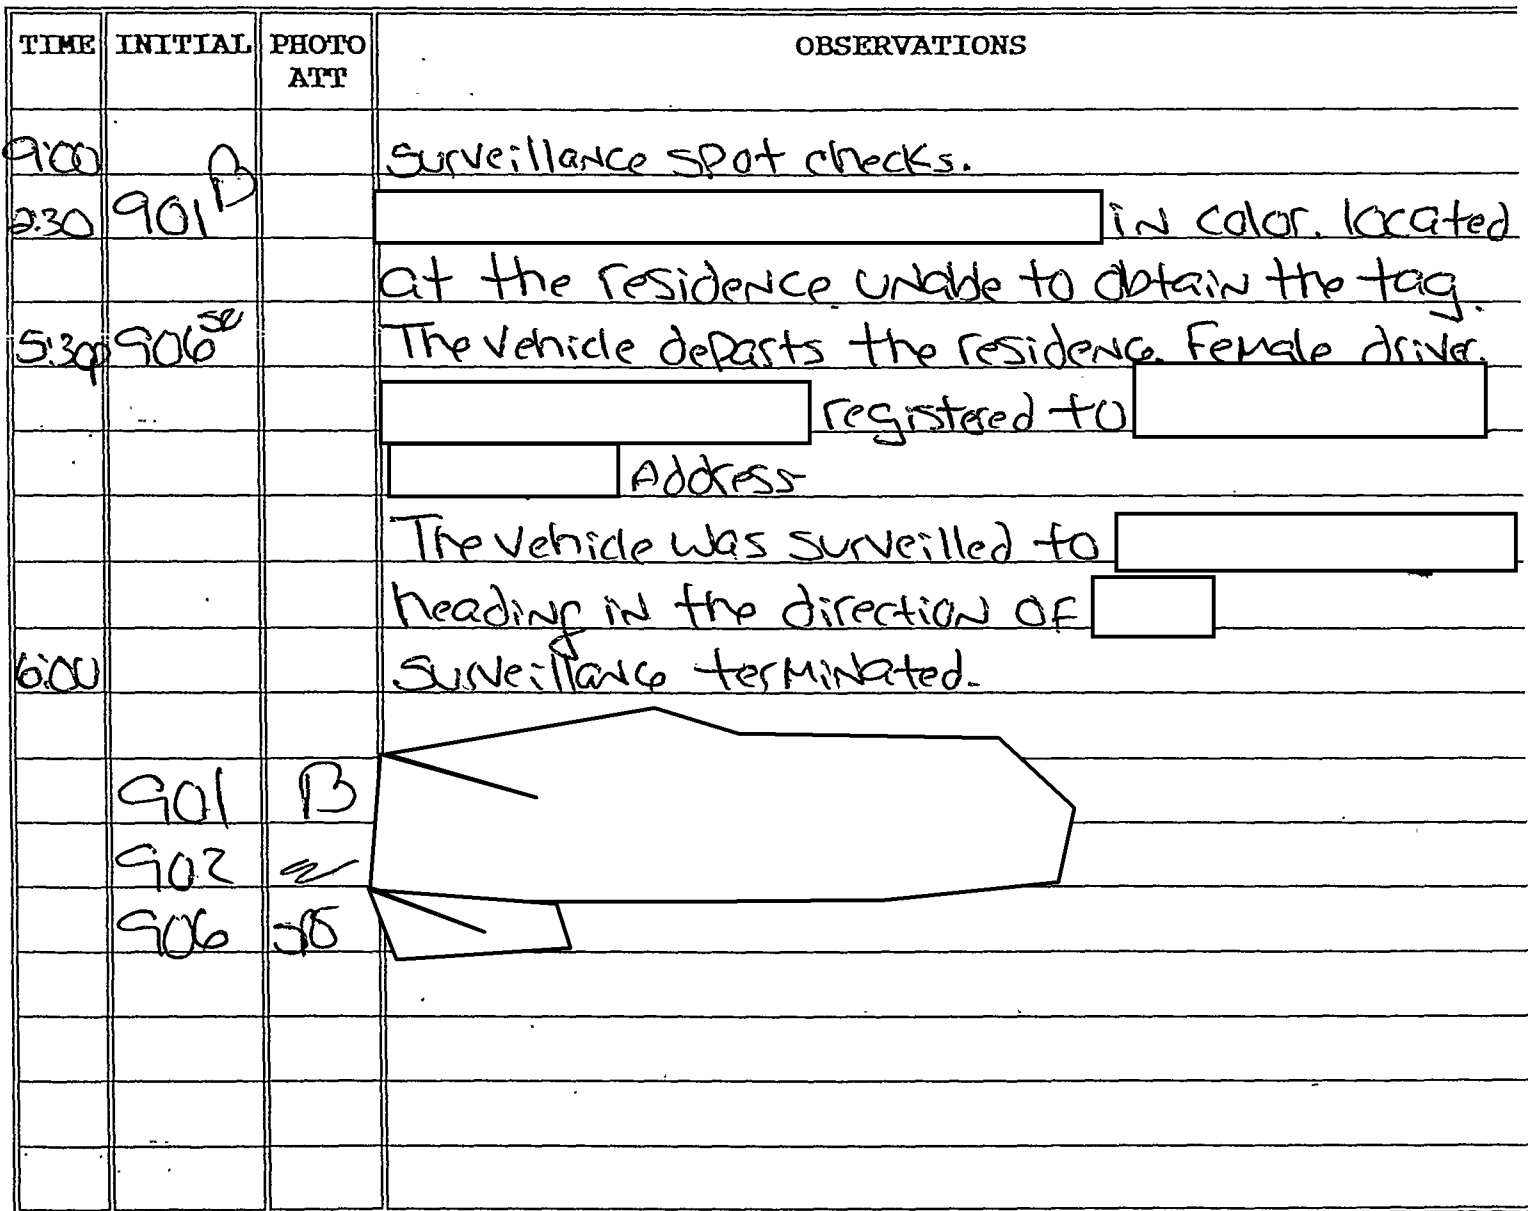 TIME INITIAL PHOTO ATT OBSERVATIONS
9:00 Surveillance spot checks.
2:30 901 B in color. located
at the residence unable to obtain the tag.
5:30p 906 The vehicle departs the residence. Female driver.
registered to
Address
The vehicle was surveilled to
heading in the direction of
6:00 Surveillance terminated.
901 B
902
906